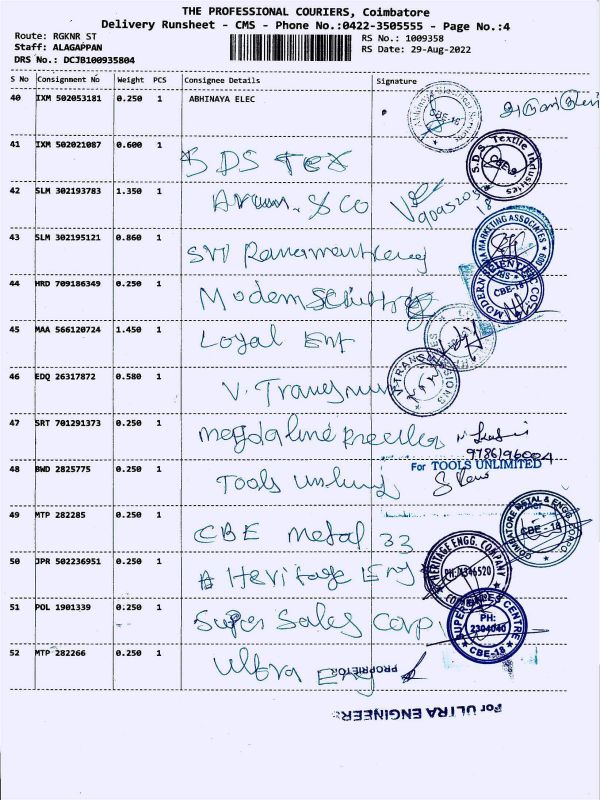 THE PROFESSIONAL COURIERS, Coimbatore
Delivery Runsheet - CMS - Phone No.:0422-3505555 - Page No.:4
Route: RGKNR ST
RS No.: 1009358
Staff: ALAGAPPAN
RS Date: 29-Aug-2022
DRS No.: DCJB100935804
S No Consignment No Weight PCS Consignee Details Signature
40 IXM 502053181 0.250 1 ABHINAYA ELEC
CBE-18
41 IXM 502021087 0.600 1 SDS TEX
S.D.S. Textile Industries CBE-18
42 SLM 302193783 1.350 1 Arun. & Co
43 SLM 302195121 0.860 1
MARKETING ASSOCIATES
44 HRD 709186349 0.250 1 Modern
MODERN SCIENTIFIC CO. CBE-18
45 MAA 566120724 1.450 1 Loyal Ent
46 EDQ 26317872 0.580 1 V.
V-TRANSMISSIONS
47 SRT 701291373 0.250 1
9786196004
48 BWD 2825775 0.250 1 Tools
For TOOLS UNLIMITED
49 MTP 282285 0.250 1 CBE metal 33
COIMBATORE METAL & ENGG. CORPO CBE - 18
50 JPR 502236951 0.250 1 Heritage Eng
HERITAGE ENGG. COMPANY
51 POL 1901339 0.250 1 Super Sales Corp
SUPER SALES CENTRE PH: 2304040 CBE-18
52 MTP 282266 0.250 1 Ultra Eng
PROPRIETOR
For ULTRA ENGINEER